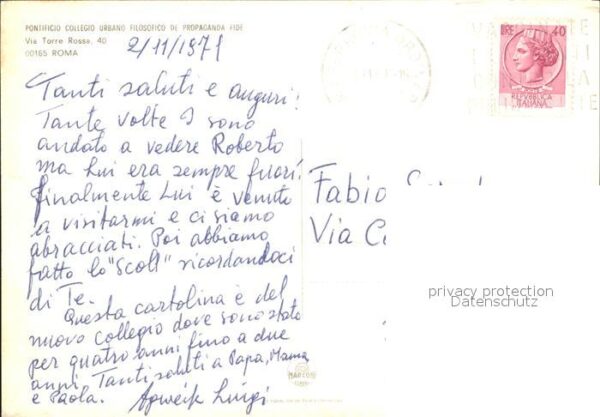 PONTIFICIO COLLEGIO URBANO FILOSOFICO DE PROPAGANDA FIDE
Via Torre Rossa, 40
00165 ROMA
2/11/1971
Tanti saluti e auguri!
Tante volte I sono
andato a vedere Roberto
ma lui era sempre fuori.
Finalmente Lui è venuto
a visitarmi e ci siamo
abbracciati. Poi abbiamo
fatto lo "Scoll" ricordandoci
di Te.
Questa cartolina è del
nuovo collegio dove sono stato
per quattro anni fino a due
anni. Tanti saluti a Papa, Mama
e Paola. Luigi
LIRE 40
REPUBBLICA
ITALIANA
Fabio
Via
privacy protection
Datenschutz